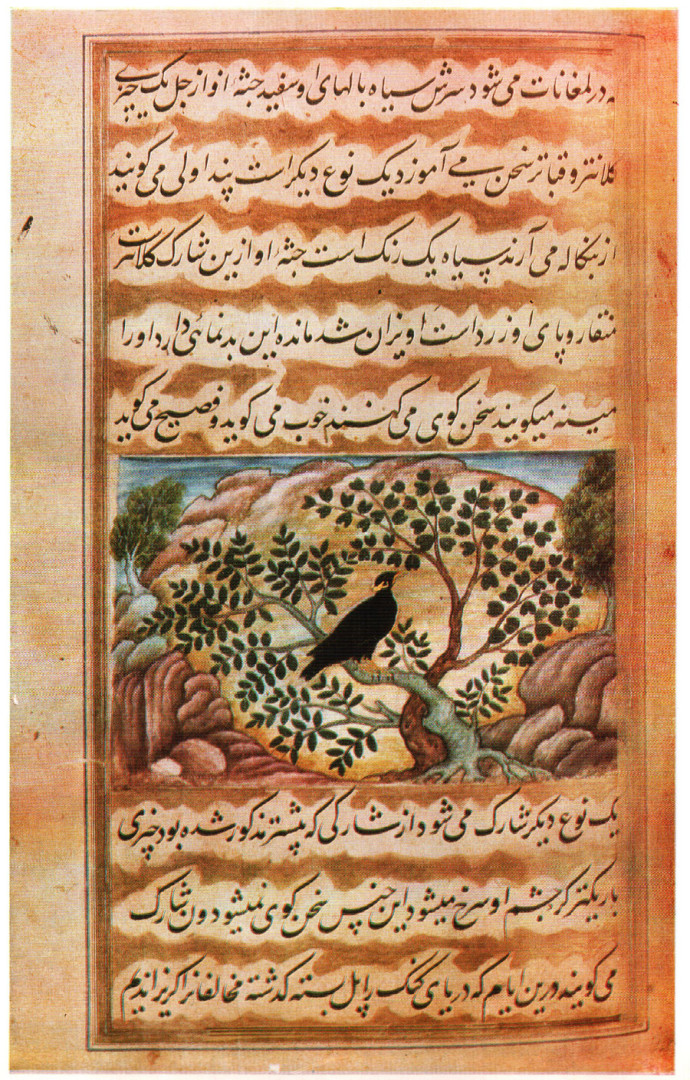 در لمغانات می شود سرش سیاه بالهای او سفید جثهٔ او از جل یک چیزی
کلانتر و قباتر سخن می آموزد یک نوع دیکر است پنداولی می کویند
از بنکاله می آرند سیاه یک رنک است جثهٔ او ازین شارک کلانتر است
منقار و پای او زرد است اویزان شد مانده این بدنمائی دارد او را
مینه میکویند سخن کوی می کنند خوب می کوید و فصیح می کوید
یک نوع دیکر شارک می شود از شارکی که پیشتر مذکور شده بود چیزی
باریکتر کر چشم او سرخ میشود این جنس سخن کوی نمیشود ون شارک
می کویند درین ایام که دریای کنک را پل بسته کذشته مخالفانرا کریزاندیم